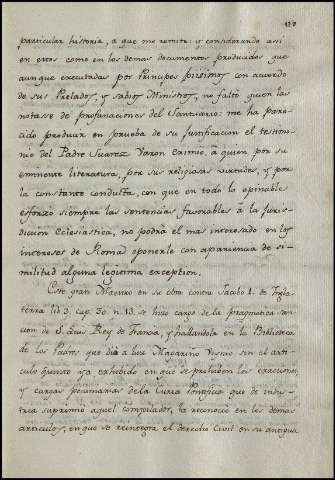 particular historia, a que me remito: y considerando assi
en estos como en los demas documentos producidos que
aunque executadas por Principes piisimos con acuerdo
de sus Prelados, y sabios Ministros, no faltó quien las
notasse de profanaciones del Santuario: me ha pare-
cido producir en prueba de su justificacion el testimo-
nio del Padre Suarez Varon eximio, á quien por su
eminente literatura, por sus religiosas virtudes, y por
la constante conducta, con que en todo lo opinable
esforzó siempre las sentencias favorables à la Juris-
diccion Eclesiastica, no podrá el mas interesado en los
intereses de Roma oponerle con apariencia de si-
militud alguna legitima exception.
Este gran Maestro en su obra contra Jacobo I. de Ingla-
terra lib. 3. cap. 30. n. 13. se hizo cargo de la pragmatica san-
cion de S. Luis Rey de Francia, y hallandola en la Biblioteca
de los Padres que dió a luz Margarino Vignio sin el arti-
culo quinto ya exhibido en que se prohiben las exacciones,
y cargas pecuniarias de la Curia Pontificia que de indus-
tria suprimió aquel compilador, la reconoció en los demas
articulos, en que se reintegra el derecho Civil en su antigua